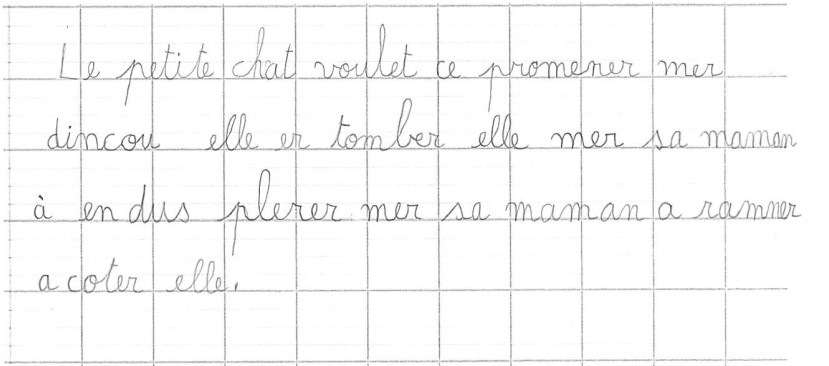 Le petite chat voulet ce promener mer
dincou elle er tomber elle mer sa maman
à en dus plerer mer sa maman a ramner
a coter elle.